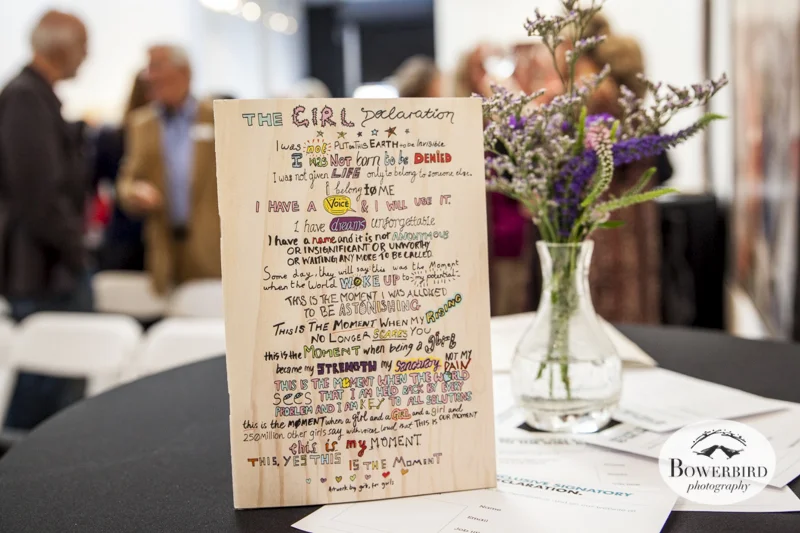 THE GIRL DECLARATION
I was not PUT ON THIS EARTH to be invisible
I WAS NOT born to be DENIED
I was not given LIFE only to belong to someone else.
I belong to ME
I HAVE A VOICE & I WILL USE IT.
I have dreams unforgettable
I have a name and it is not ANONYMOUS
OR INSIGNIFICANT OR UNWORTHY
OR WAITING ANY MORE TO BE CALLED.
Some day, they will say this was the Moment
when the World WOKE UP to my potential
THIS IS THE MOMENT I WAS ALLOWED
TO BE ASTONISHING.
THIS IS THE MOMENT WHEN MY RISING
NO LONGER SCARES YOU
this is the MOMENT when being a girl
became my STRENGTH my sanctuary NOT MY PAIN
THIS IS THE MOMENT WHEN THE WORLD
SEES THAT I AM HELD BACK BY EVERY
PROBLEM AND I AM KEY TO ALL SOLUTIONS
this is the MOMENT when a girl and a GIRL and a girl and
250 million other girls say with voices loud that THIS IS OUR MOMENT
this is my MOMENT
THIS, YES THIS IS THE MOMENT
Artwork by girls, for girls
CLUSIVE SIGNATORY
CLARATION.
Name
Email
BOWERBIRD
photography